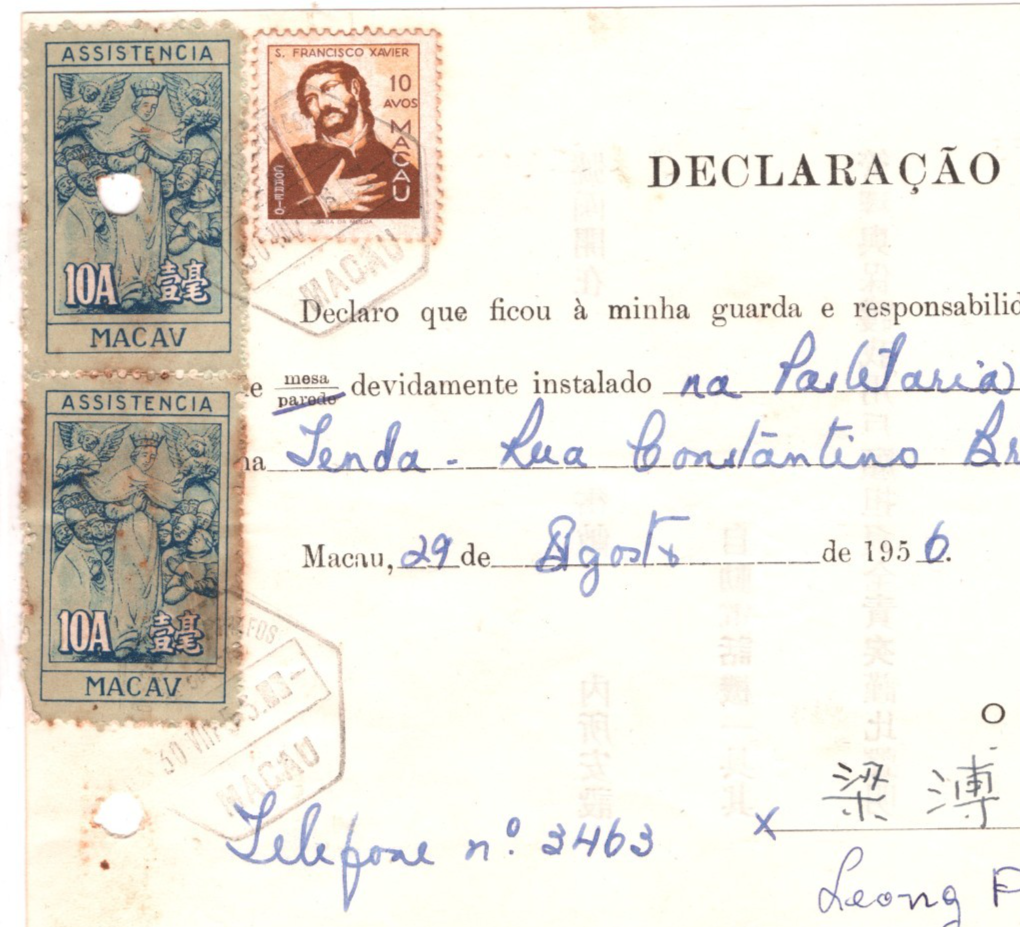 ASSISTENCIA
10A 壹毫
MACAV
ASSISTENCIA
10A 壹毫
MACAV
S. FRANCISCO XAVIER
10
AVOS
MACAU
CORREIO
MACAU
DECLARAÇÃO
Declaro que ficou à minha guarda e responsabilid
e mesa
parede devidamente instalado na Pastelaria
na Tenda - Rua Constântino Br
Macau, 29 de Agosto de 1956.
O
MACAU
梁 溥
Telefone nº 3463 x
Leong F